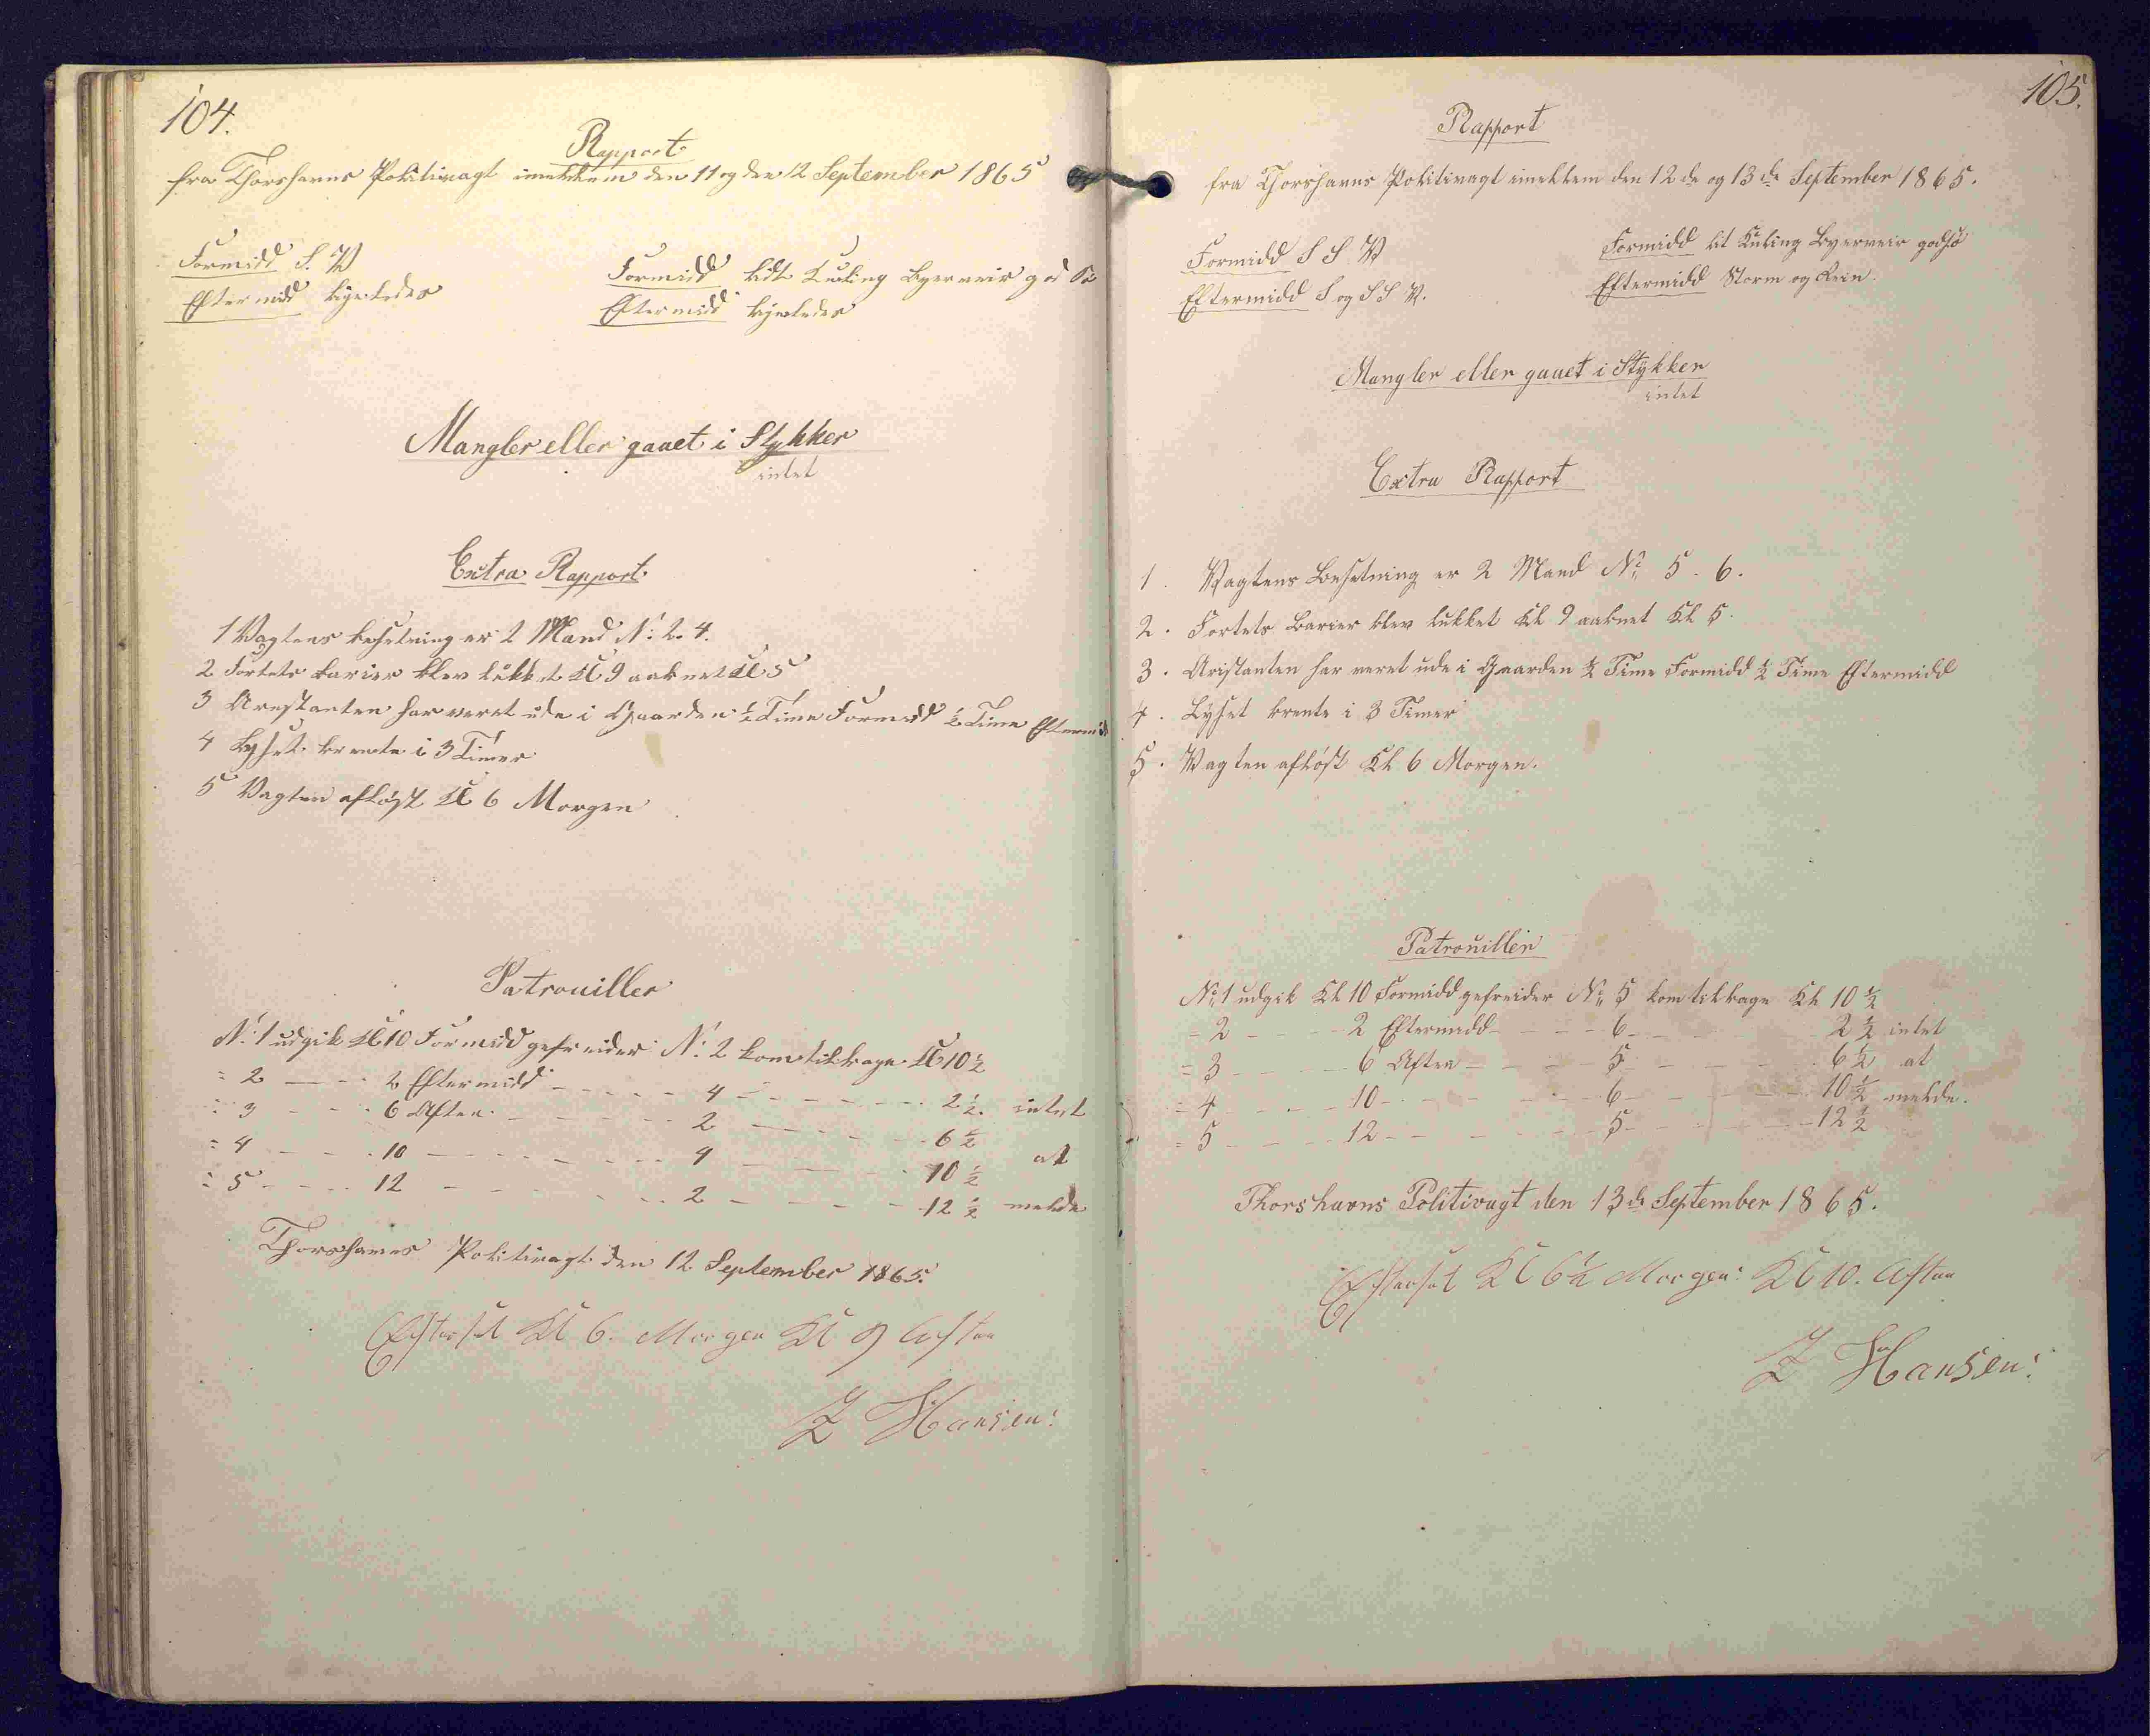 104.
Rapport
fra Thorshavns Politivagt imellem den 11 og den 12 September 1865
Formidd S. W
Eftermidd ligeledes
Formidd lidt Kuling Byerveir god Sø
Eftermidd ligeledes
Mangler eller gaaet i Stykker
intet
Extra Rapport
1 Vagtens besetning er 2 Mand N: 2. 4.
2 Fortets barier blev lukket Kl 9 aabnet Kl 5
3 Arestanten har veret ude i Gaarden ½ Time Formidd ½ Time Eftermidd
4 Lyset brente i 3 Timer
5 Vagten afløst Kl 6 Morgen
Patrouiller
N: 1 udgik Kl 10 Formidd gefreider N: 2 kom tilbage Kl 10 ½
= 2 - - - 2 Eftermidd - - - - 4 - - - - - - 2 ½ intet
= 3 - - - 6 Aften - - - - 2 - - - - - 6 ½
= 4 - - - 10 - - - - - - 4 - - - - - 10 ½ at
= 5 - - - 12 - - - - - - 2 - - - - - 12 ½ melde
Thorshavns Politivagt den 12 September 1865.
Efterset Kl 6. Morgen Kl 9 Aften
Z Hansen:
105.
Rapport
fra Thorshavns Politivagt imellem den 12de og 13de September 1865.
Formidd S S. W
Eftermidd S og S S W.
Formidd lit Kuling Byerveir god Sø
Eftermidd Storm og Rein.
Mangler eller gaaet i Stykker
intet
Extra Rapport
1. Vagtens Besetning er 2 Mand No 5. 6.
2. Fortets Barier blev lukket Kl 9 aabnet Kl 5.
3. Aristanten har veret ude i Gaarden ½ Time Formidd ½ Time Eftermidd
4. Lyset brente i 3 Timer
5. Vagten afløst Kl 6 Morgen.
Patrouiller
No 1 udgik Kl 10 Formidd gefreider No 5 kom tilbage Kl 10 ½
= 2 - - - - 2 Eftermidd - - - - 6 - - - - - 2 ½ intet
= 3 - - - - 6 Aften - - - - 5 - - - - - 6 ½ at
= 4 - - - - 10 - - - - - - 6 - - - - - 10 ½ melde.
= 5 - - - - 12 - - - - - - 5 - - - - - 12 ½
Thorshavns Politivagt den 13de September 1865.
Efterset Kl 6 ½ Morgen: Kl 10. Aften
Z Hansen: